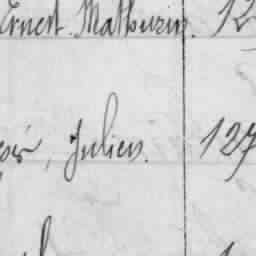 Ernest. Mathurin. 12
Julien. 127